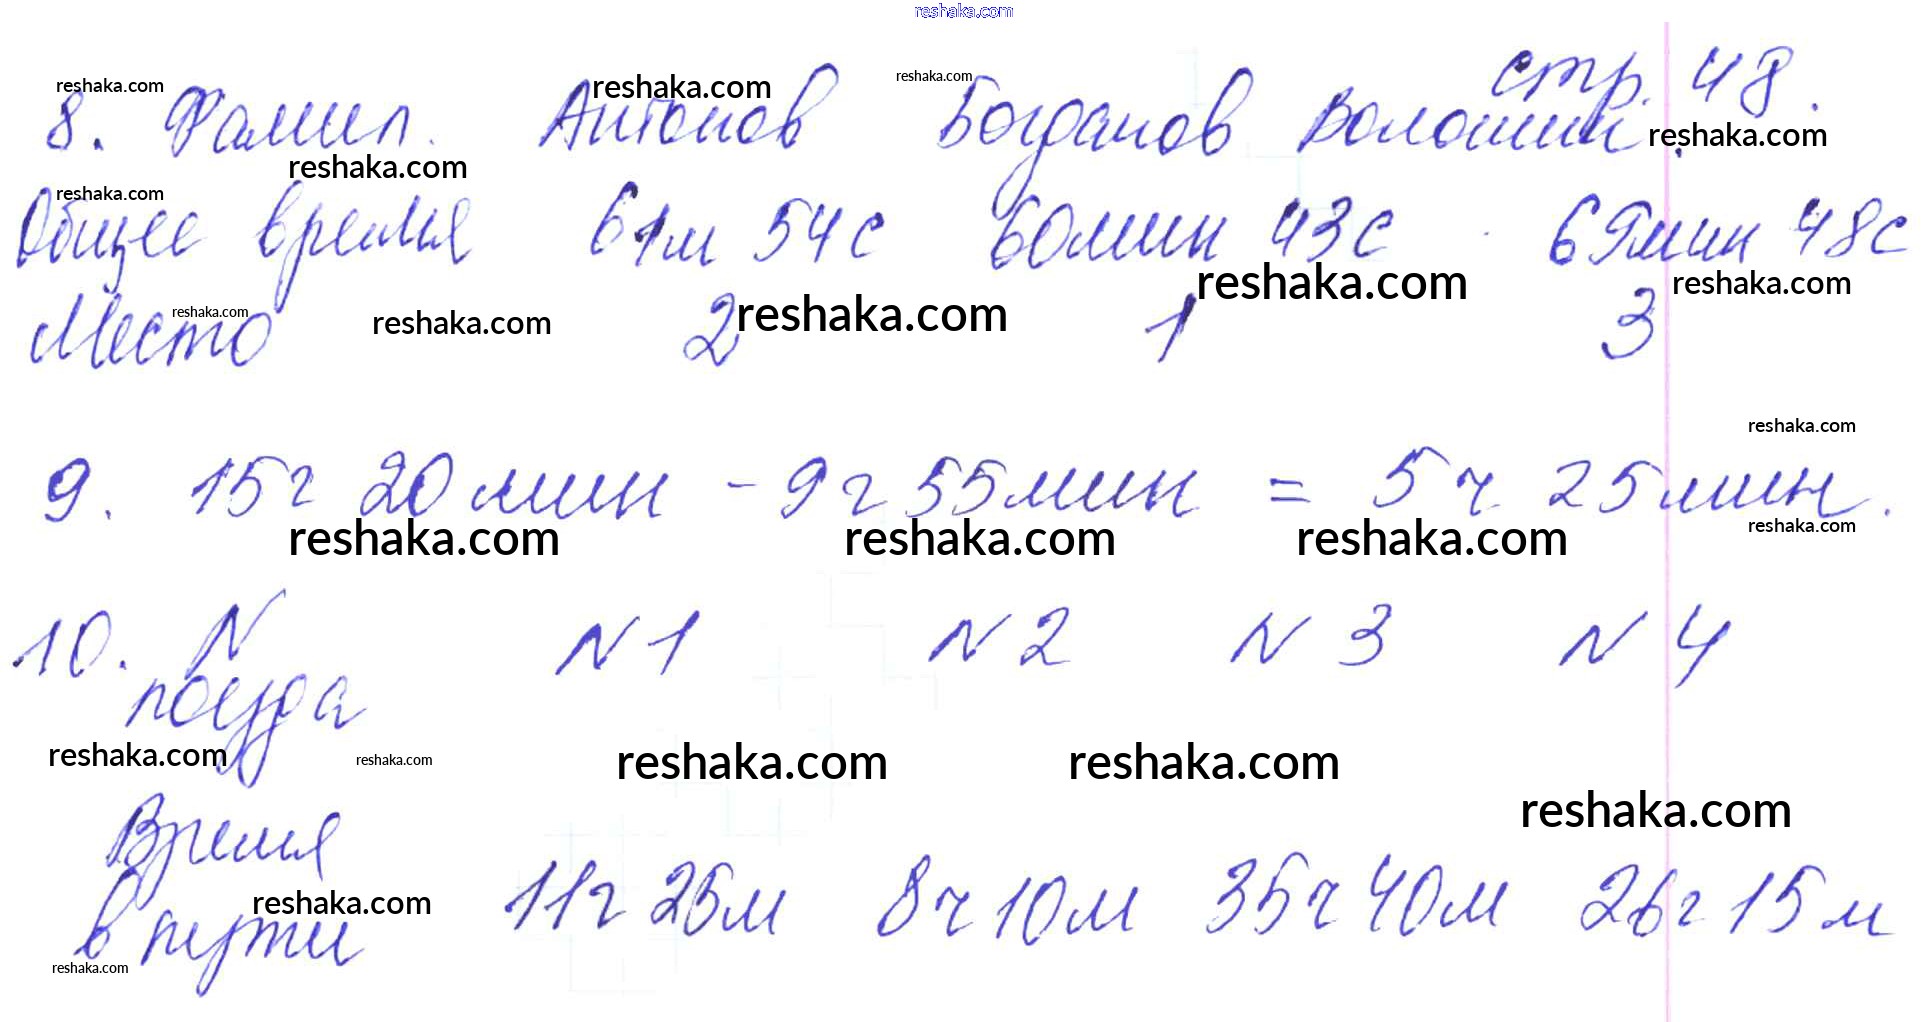 reshaka.com
стр. 48.
reshaka.com reshaka.com reshaka.com
8. Фамил. Антонов Богданов Волошин.
reshaka.com reshaka.com
reshaka.com
Общее время 61м 54с 60мин 43с 69мин 48с
reshaka.com reshaka.com
Место 2 1 3
reshaka.com reshaka.com reshaka.com
reshaka.com
9. 15ч 20мин - 9ч 55мин = 5ч 25мин.
reshaka.com reshaka.com reshaka.com reshaka.com
10. N N1 N2 N3 N4
поезда
reshaka.com reshaka.com reshaka.com reshaka.com
reshaka.com
Время
в пути 11ч 25м 8ч 10м 35ч 40м 26ч 15м
reshaka.com
reshaka.com